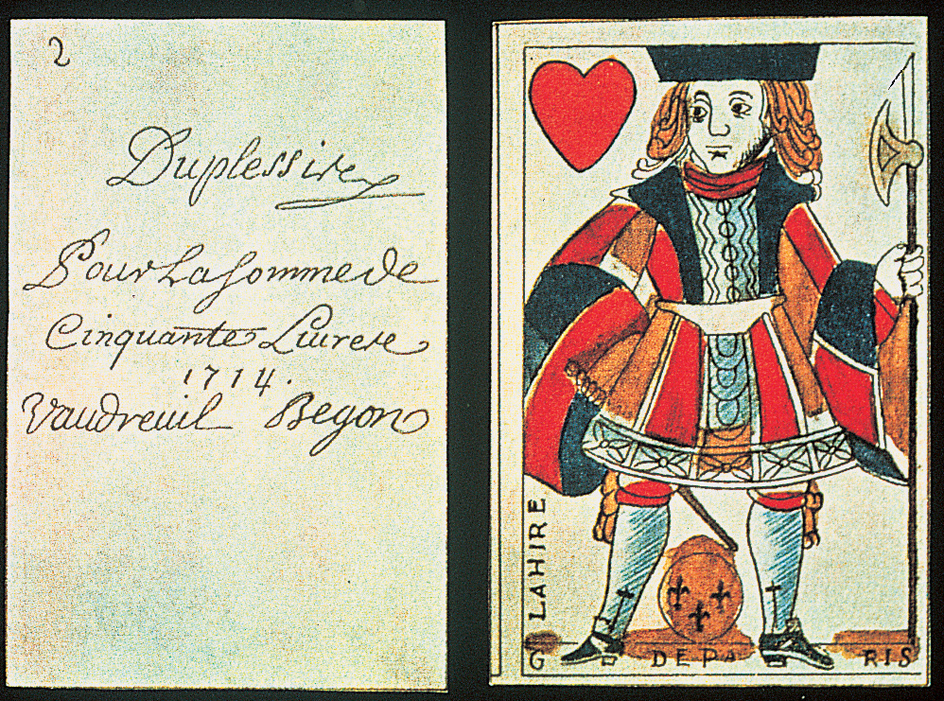 2
Duplessis
Pour La somme de
Cinquante Livres
1714.
Vaudreuil Begon
LAHIRE
G DE PA RIS